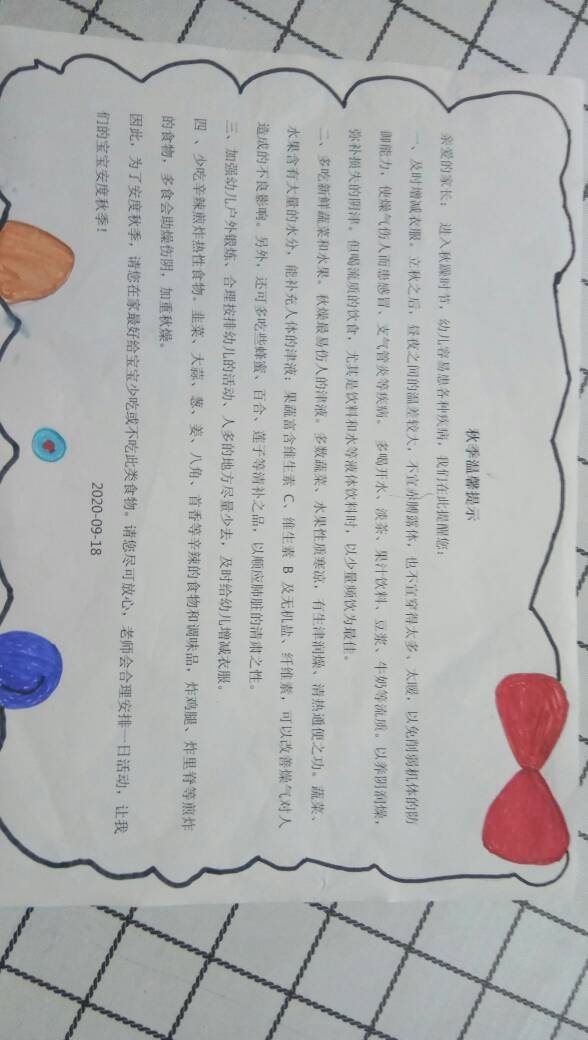 秋季温馨提示
亲爱的家长： 进入秋躁时节，幼儿容易患各种疾病，我们在此提醒您：
一、及时增减衣服。立秋之后，昼夜之间的温差较大，不宜赤膊露体，也不宜穿得太多、太暖，以免削弱机体的防
御能力，使燥气伤人而患感冒、支气管炎等疾病。 多喝开水、淡茶、果汁饮料、豆浆、牛奶等流质。以养阴润燥，
弥补损失的阴津。但喝流质的饮食，尤其是饮料和水等液体饮料时，以少量频饮为最佳。
二、多吃新鲜蔬菜和水果。秋燥最易伤人的津液。多数蔬菜、水果性质寒凉，有生津润燥、清热通便之功。蔬菜、
水果含有大量的水分，能补充人体的津液；果蔬富含维生素 C、维生素 B 及无机盐、纤维素，可以改善燥气对人
造成的不良影响。另外，还可多吃些蜂蜜、百合、莲子等清补之品，以顺应肺脏的清肃之性。
三、加强幼儿户外锻炼、合理按排幼儿的活动、人多的地方尽量少去，及时给幼儿增减衣服。
四 、少吃辛辣煎炸热性食物。韭菜、大蒜、葱、姜、八角、茴香等辛辣的食物和调味品，炸鸡腿、炸里脊等煎炸
的食物，多食会助燥伤阴，加重秋燥。
因此，为了安度秋季，请您在家最好给宝宝少吃或不吃此类食物。请您尽可放心，老师会合理安排一日活动，让我
们的宝宝安度秋季！
2020-09-18